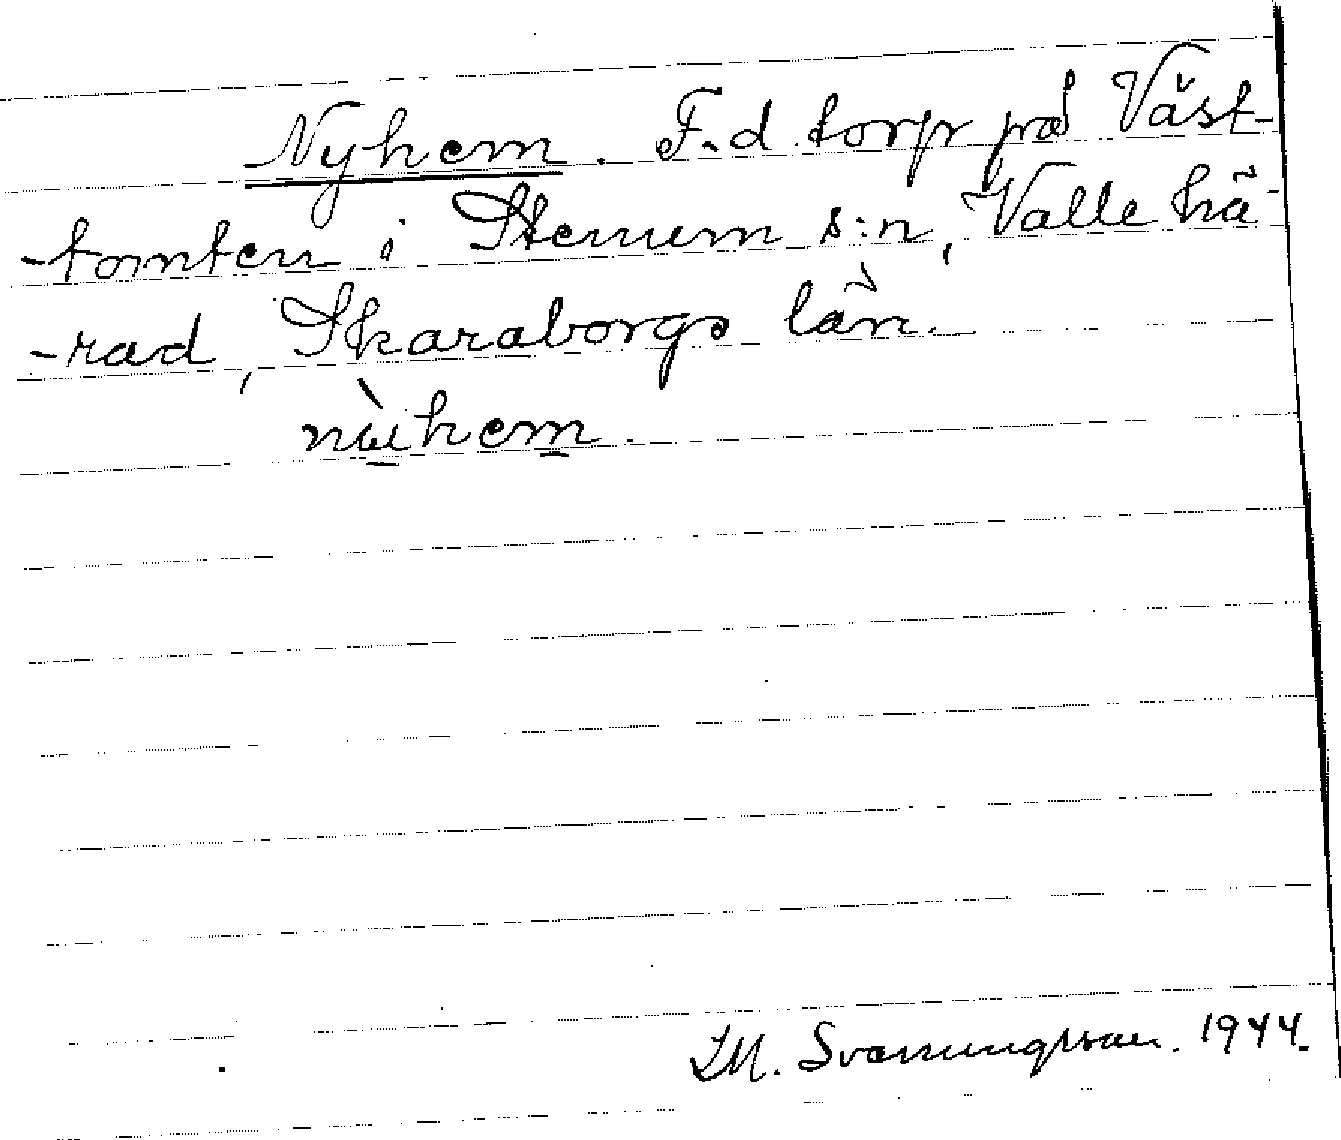 Nyhem. F.d. torp på Väst-
-tomten i Stenum s:n, Valle hä-
-rad, Skaraborgs län.
nỳhem.
M. Svanungsson. 1944.